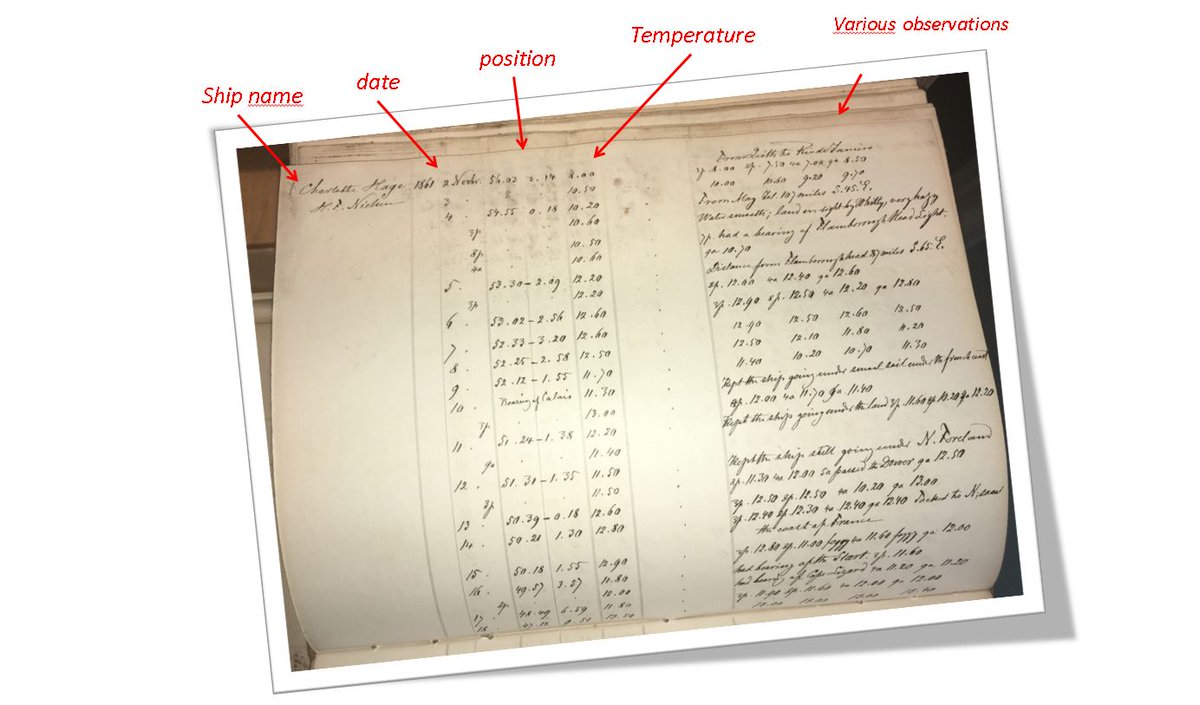 Ship name
date
position
Temperature
Various observations
Charlotte Hage 1861 2 Novbr. 56.03 3.14 8.00 From Leith to Rio de Janeiro
H. P. Nielsen 10.50 3p 8.00 8p 7.50 4a 7.00 9a 8.50
3 . 10.00 10.60 9.20 9.70
4 . 54.55 0.18 10.20 From May Isl. 107 miles S.45.E.
3p 10.60 Water smooth; land in sight by Whitby, very hazy
8p 10.50 7p had a bearing of Flamborough Head Light.
4a 10.60 9a 10.70
5 . 53.30 - 2.09 12.20 Distance from Flamborough head 87 miles S.65.E.
3p 12.20 8p. 12.00 4a 12.40 9a 12.60
6 . 53.02 - 2.56 12.60 3p. 12.90 8p. 12.50 4a 12.20 9a 12.80
7 . 52.33 - 3.20 12.60 12.90 12.50 12.60 12.50
8 . 52.25 - 2.58 12.50 12.50 12.10 11.80 11.20
9 . 52.12 - 1.55 11.70 11.40 10.20 10.70 11.30
10 . Bearing of Calais 11.30 Kept the ship going under small sail under the french coast
3p 13.00 8p. 12.00 4a 11.70 9a 11.40
11 . 51.24 - 1.38 12.20 Kept the ship going under the land 3p. 11.60 8p 10.20 9a 12.20
9a 11.40
12 . 51.31 - 1.35 11.50 Kept the ship still going under N. Foreland
3p 11.50 8p. 11.30 4a 12.00 5a passed Dover 9a 12.50
13 . 50.39 - 0.18 12.60 3p. 12.50 8p. 12.50 4a 10.20 9a 13.00
14 . 50.21 1.30 12.80 3p. 12.40 8p. 12.30 4a 12.40 9a 12.40 Tacked to N, saw
the coast of France
15 . 50.18 1.55 12.90 3p. 12.80 8p. 11.00 foggy 4a 11.60 foggy 9a 12.00
16 . 49.57 3.57 11.80 had bearing of the Start 3p. 11.60
3p 12.00 had bearing of Cape Lizard 4a 11.20 9a 11.20
17 . 48.49 6.59 11.80 3p 11.90 8p. 11.60 4a 12.00 9a 12.00
18 .